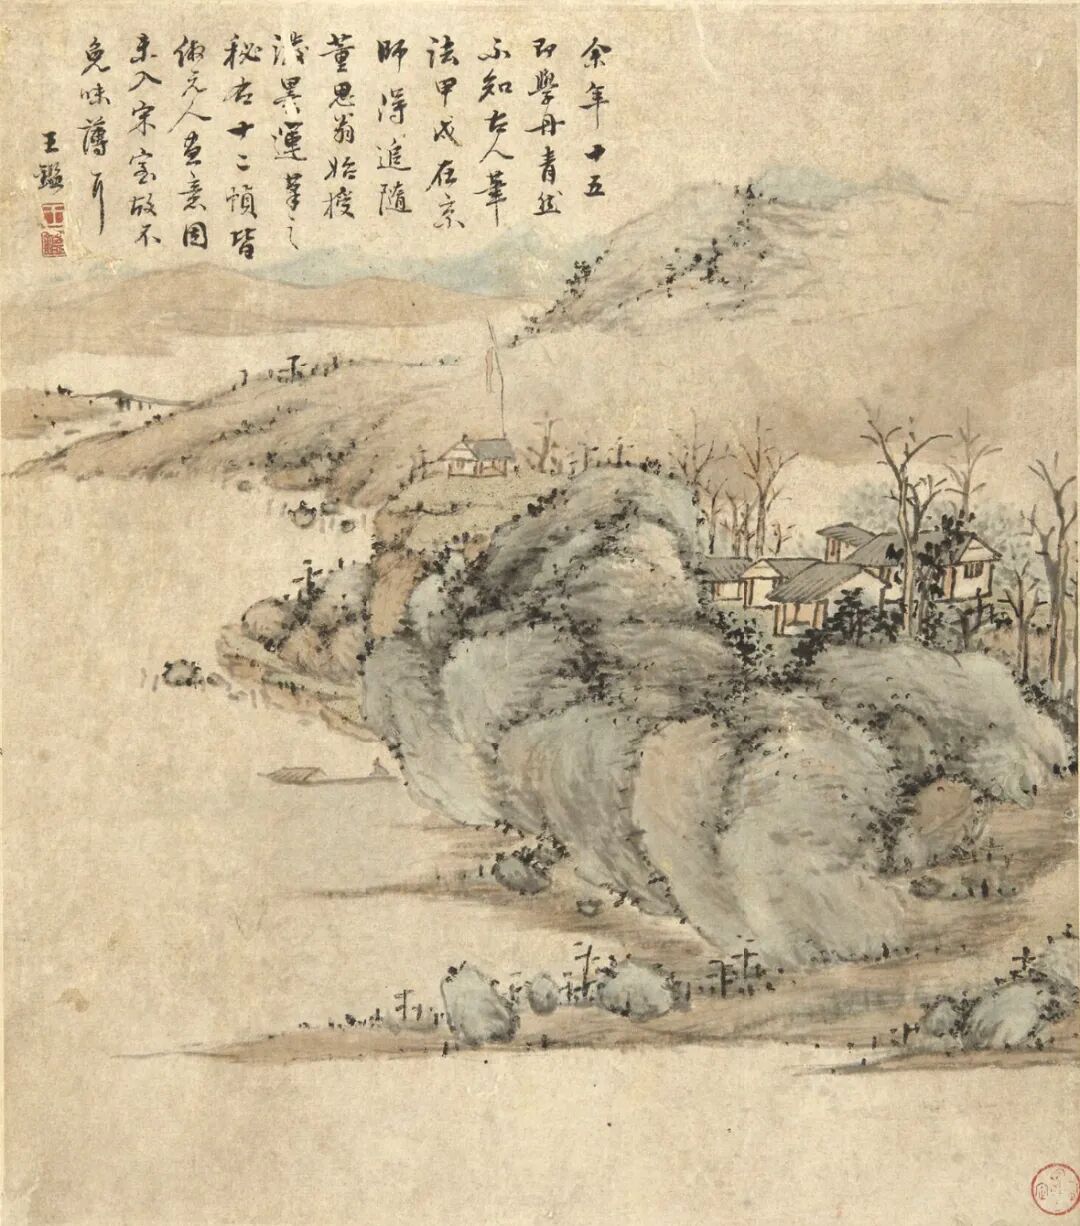 余年十五
即學丹青然
不知古人筆
法甲戌在京
師得追隨
董思翁始授
潑墨運筆之
秘右十二幀皆
倣元人畫意因
未入宋室故不
免味薄耳
王鑑